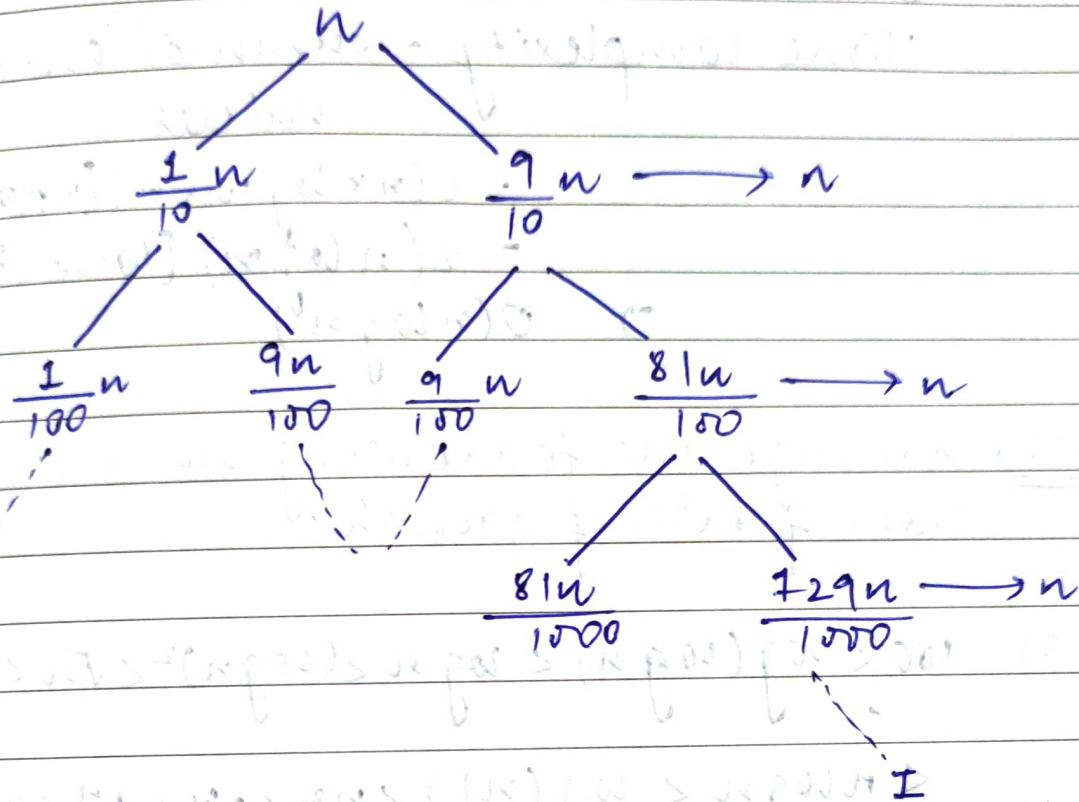 n
1/10 n 9/10 n → n
1/100 n 9n/100 9/100 n 81n/100 → n
81n/1000 729n/1000 → n
1